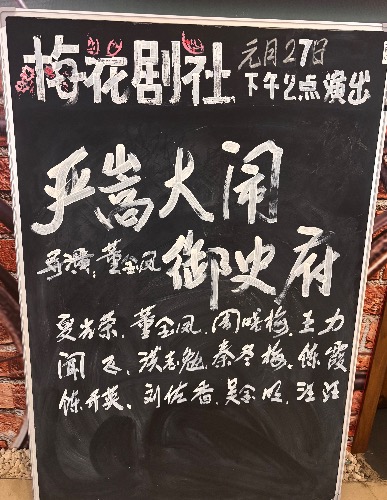 梅花剧社 元月27日
下午2点演出
严嵩大闹
导演:董金凤 御史府
夏光荣、董金凤、周晓梅、王力
闻飞、洪志勉、秦冬梅、陈霞
陈开英、刘佐香、吴金旺、汪汪